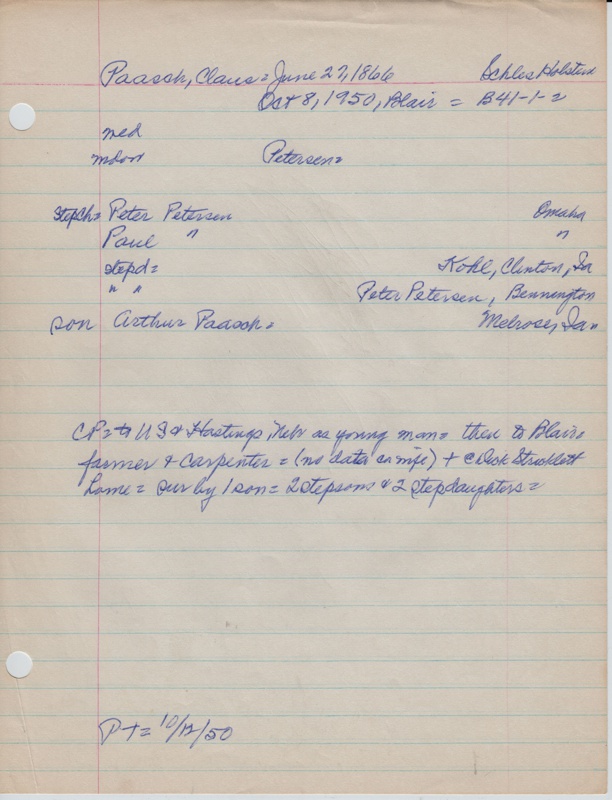 Paasch, Claus = June 27, 1866 Schles Holstein
Oct 8, 1950, Blair = B41-1-2
med
mdon Petersen =
stepch = Peter Petersen Omaha
Paul " "
stepd = Kohl, Clinton, Ia
" " Peter Petersen, Bennington
son Arthur Paasch = Melrose, Ia =
CP = to US & Hastings, Neb as young man = then to Blair =
farmer & carpenter = (no data on wife) + @ Dick Stricklett
home = sur by 1 son = 2 stepsons & 2 stepdaughters =
PT = 10/12/50